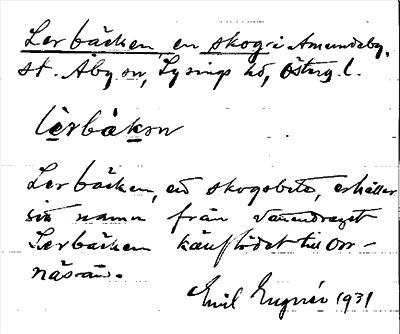 Lerbäcken, en skog i Amundeby,
St. Åby sn, Lysings hd, Österg. l.
lèrbàkən
Lerbäcken, en skogsbit, erhåller
sitt namn från
Lerbäcken till Orr-
näsån.
Emil Engnér 1931